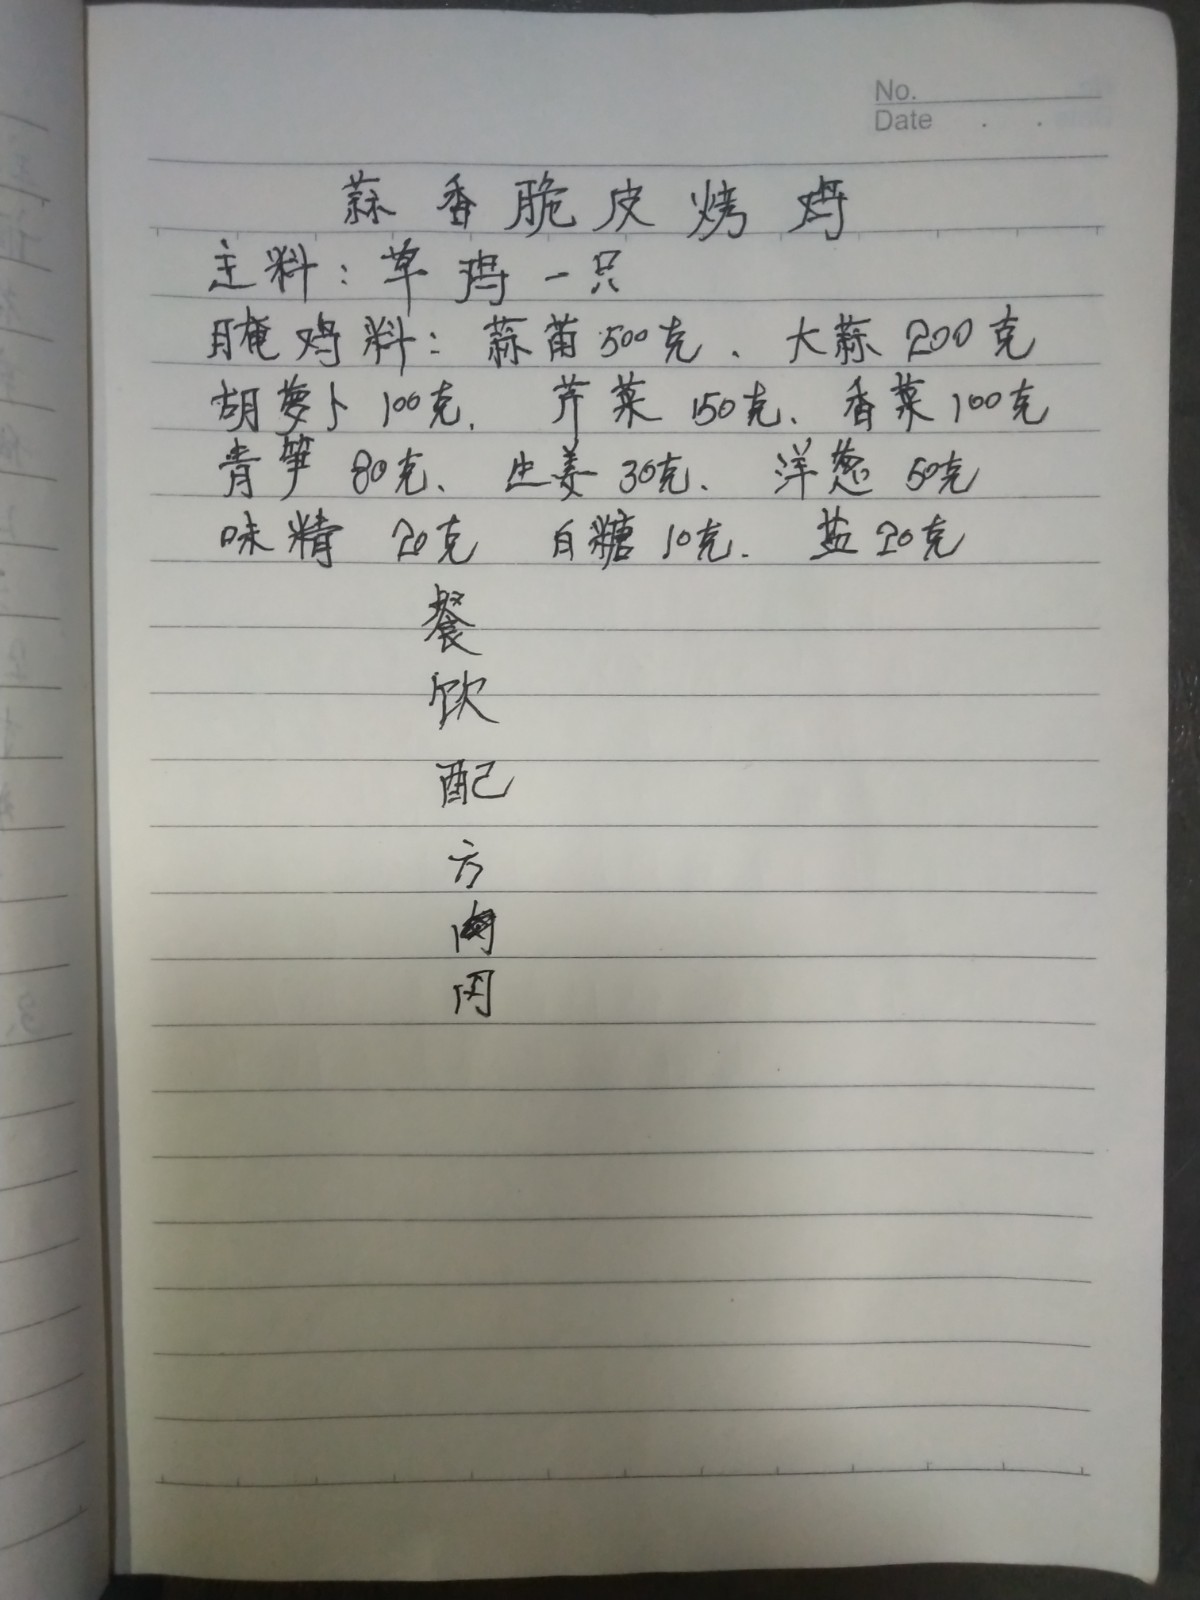 No.
Date . .
蒜香脆皮烤鸡
主料：草鸡一只
腌鸡料：蒜苗500克、大蒜200克
胡萝卜100克、芹菜150克、香菜100克
青笋80克、生姜30克、洋葱50克
味精20克 白糖10克、盐20克
餐
饮
配
方
网